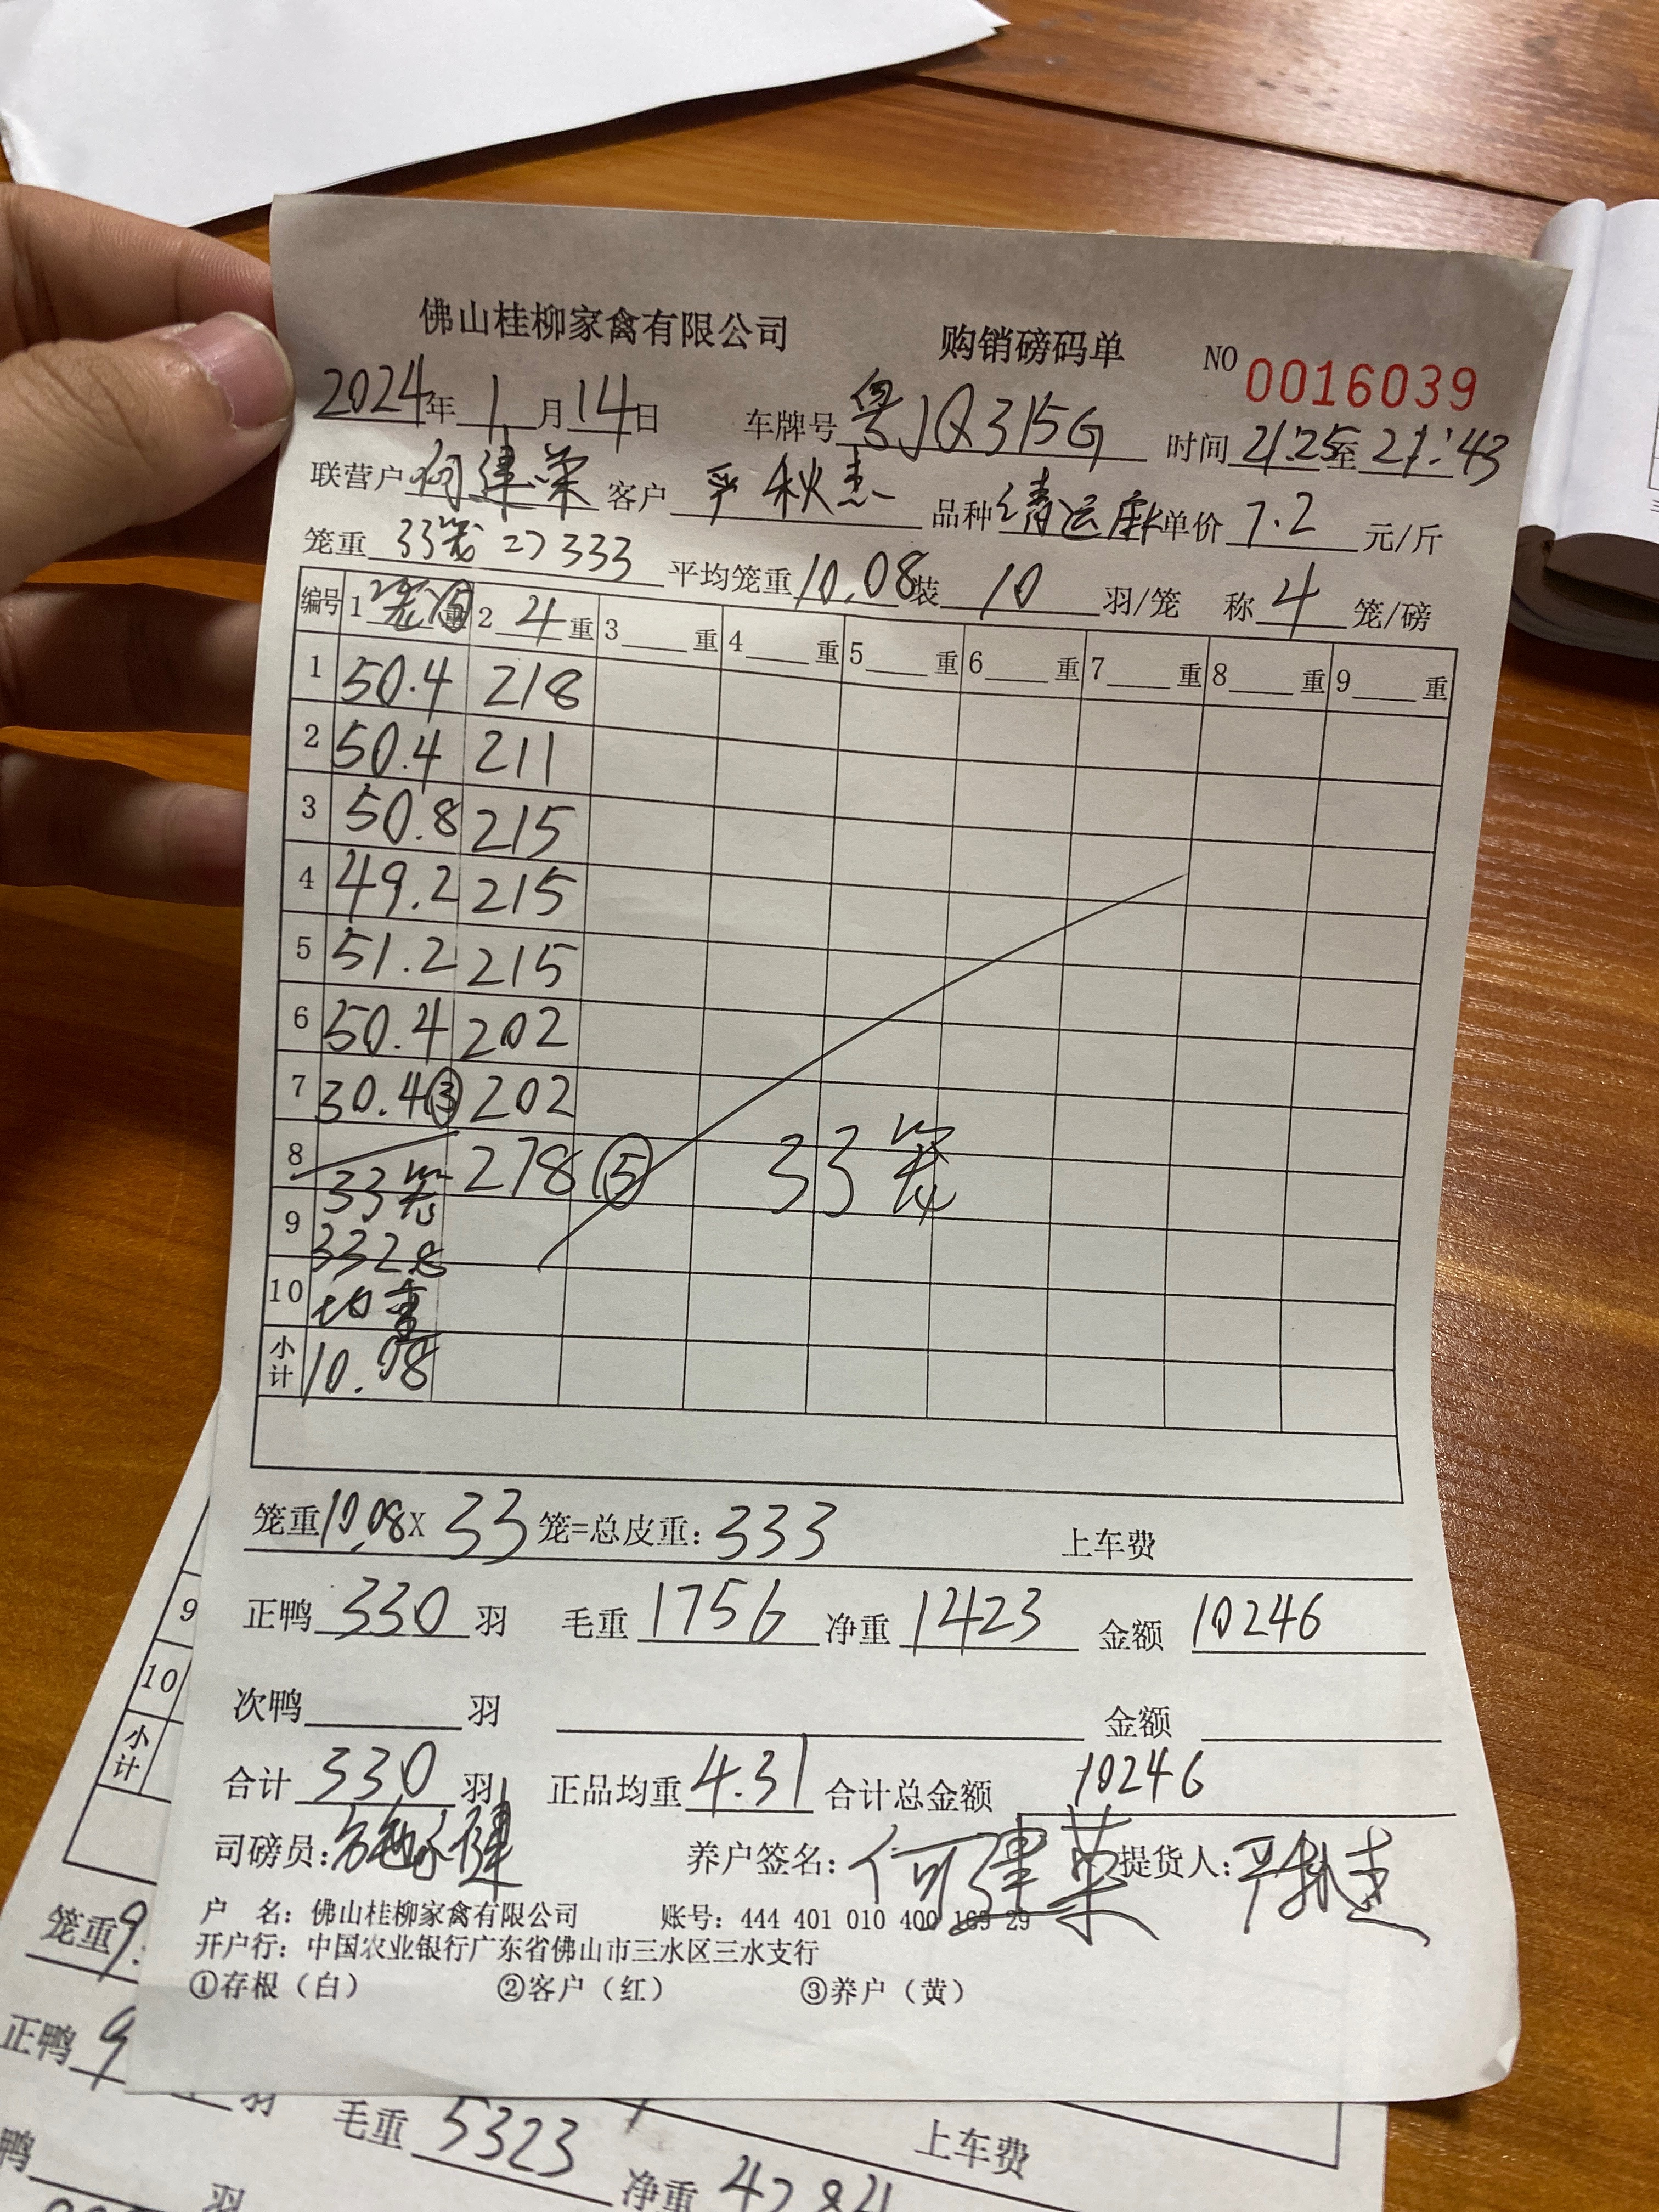 佛山桂柳家禽有限公司 购销磅码单 NO 0016039
2024年1月14日 车牌号 粤JQ315G 时间 21:25至21:43
联营户 何建荣 客户 严秋杰 品种 清远麻 单价 7.2 元/斤
笼重 33笼 333 平均笼重 10.08 装 10 羽/笼 称 4 笼/磅
编号 1 笼 ⑤ 重 2 4 重 3 重 4 重 5 重 6 重 7 重 8 重 9 重
1 50.4 218
2 50.4 211
3 50.8 215
4 49.2 215
5 51.2 215
6 50.4 202
7 30.4 ③ 202
8 278 ⑤ 33笼
33笼
9 332.8
10 均重
小计 10.08
笼重 10.08 X 33 笼=总皮重: 333 上车费
正鸭 330 羽 毛重 1756 净重 1423 金额 10246
次鸭 羽 金额
合计 330 羽 正品均重 4.31 合计总金额 10246
司磅员: 养户签名: 何建荣 提货人: 严秋杰
户 名: 佛山桂柳家禽有限公司 账号: 444 401 010 400 169 29
开户行: 中国农业银行广东省佛山市三水区三水支行
①存根（白） ②客户（红） ③养户（黄）
9
10
小计
笼重 9.
正鸭 9 羽 毛重 5323 净重 4284 上车费
鸭 羽